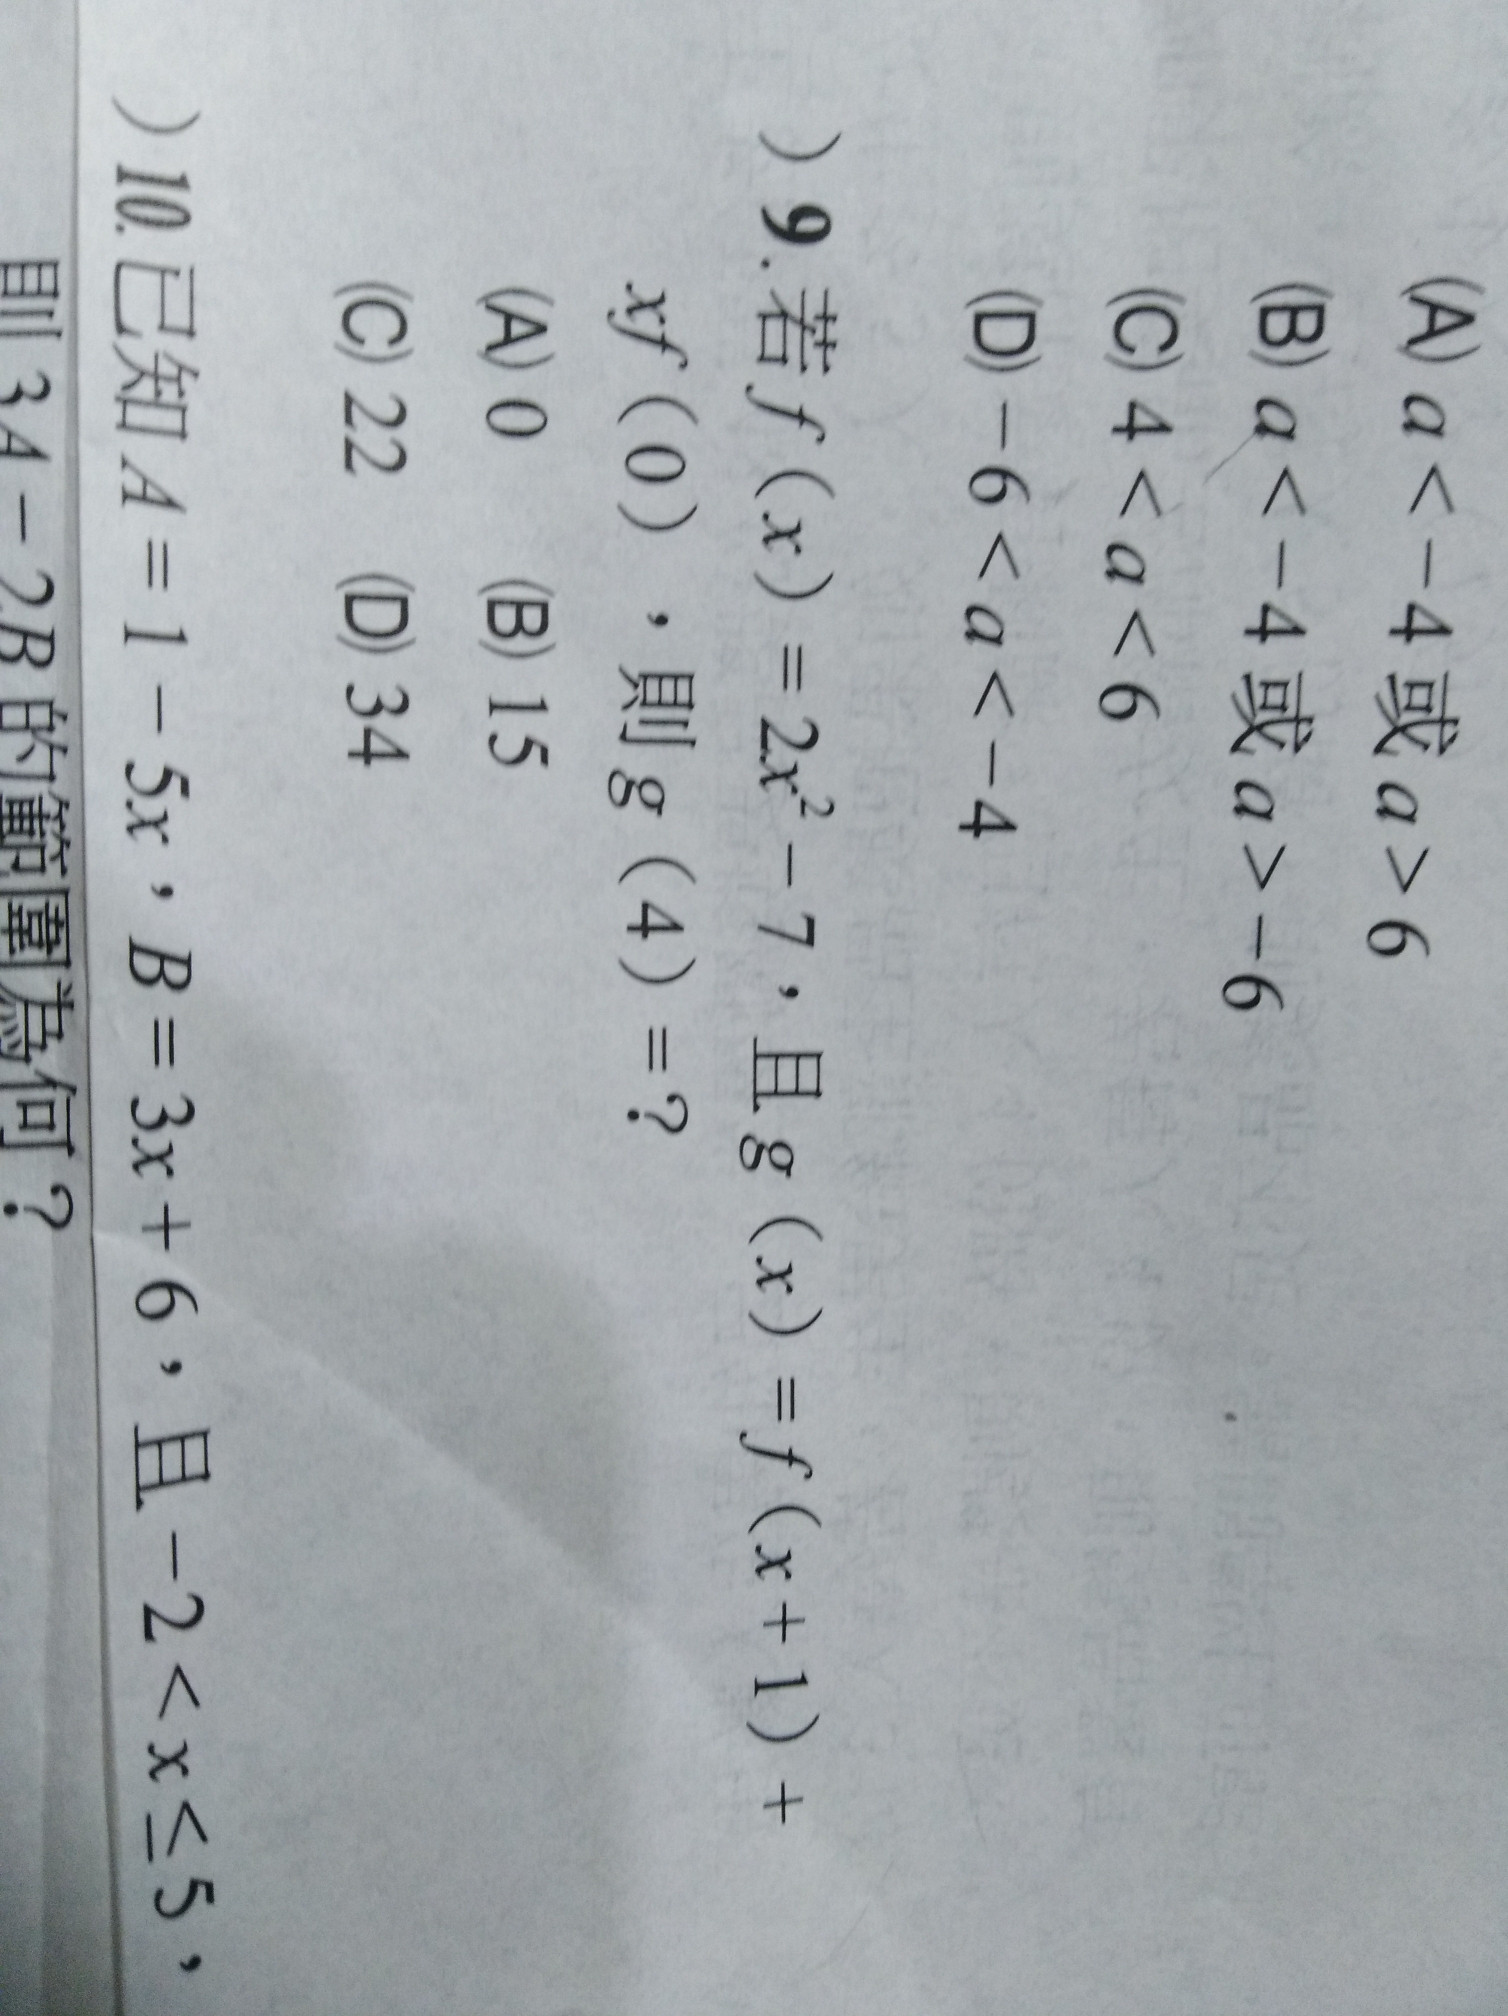 (A) a < −4 或 a > 6
(B) a < −4 或 a > −6
(C) 4 < a < 6
(D) −6 < a < −4
) 9. 若 f (x) = 2x² − 7，且 g (x) = f (x + 1) +
xf (0)，則 g (4) = ?
(A) 0 (B) 15
(C) 22 (D) 34
) 10. 已知 A = 1 − 5x，B = 3x + 6，且 −2 < x ≤ 5，
則 3A − 2B 的範圍為何？